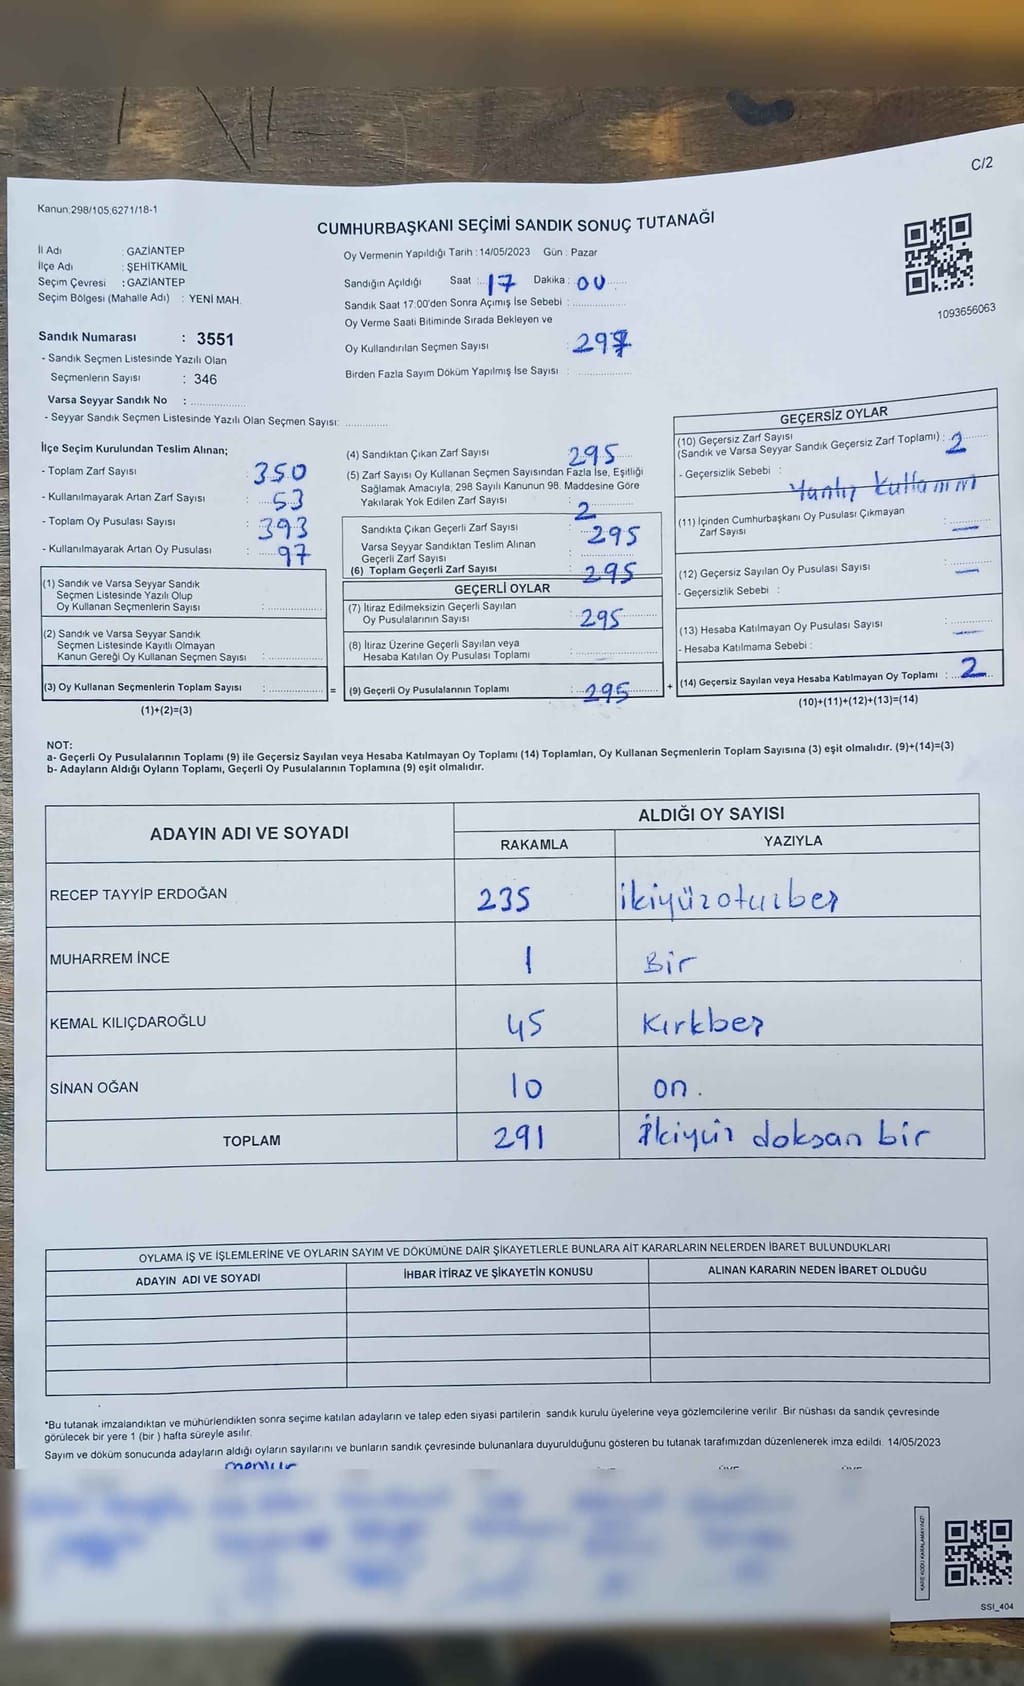 C/2
Kanun;298/105,6271/18-1
CUMHURBAŞKANI SEÇİMİ SANDIK SONUÇ TUTANAĞI
1093656063
İl Adı : GAZİANTEP
İlçe Adı : ŞEHİTKAMİL
Seçim Çevresi : GAZİANTEP
Seçim Bölgesi (Mahalle Adı) : YENİ MAH.
Sandık Numarası : 3551
- Sandık Seçmen Listesinde Yazılı Olan
Seçmenlerin Sayısı : 346
Varsa Seyyar Sandık No :
- Seyyar Sandık Seçmen Listesinde Yazılı Olan Seçmen Sayısı:
Oy Vermenin Yapıldığı Tarih : 14/05/2023 Gün : Pazar
Sandığın Açıldığı Saat : 17 Dakika : 00
Sandık Saat 17:00'den Sonra Açımış İse Sebebi :
Oy Verme Saati Bitiminde Sırada Bekleyen ve
Oy Kullandırılan Seçmen Sayısı : 297
Birden Fazla Sayım Döküm Yapılmış İse Sayısı :
İlçe Seçim Kurulundan Teslim Alınan;
- Toplam Zarf Sayısı : 350
- Kullanılmayarak Artan Zarf Sayısı : 53
- Toplam Oy Pusulası Sayısı : 393
- Kullanılmayarak Artan Oy Pusulası : 97
(1) Sandık ve Varsa Seyyar Sandık
Seçmen Listesinde Yazılı Olup
Oy Kullanan Seçmenlerin Sayısı :
(2) Sandık ve Varsa Seyyar Sandık
Seçmen Listesinde Kayıtlı Olmayan
Kanun Gereği Oy Kullanan Seçmen Sayısı :
(3) Oy Kullanan Seçmenlerin Toplam Sayısı : =
(1)+(2)=(3)
(4) Sandıktan Çıkan Zarf Sayısı : 295
(5) Zarf Sayısı Oy Kullanan Seçmen Sayısından Fazla İse, Eşitliği
Sağlamak Amacıyla, 298 Sayılı Kanunun 98. Maddesine Göre
Yakılarak Yok Edilen Zarf Sayısı : 2
Sandıkta Çıkan Geçerli Zarf Sayısı : 295
Varsa Seyyar Sandıktan Teslim Alınan
Geçerli Zarf Sayısı :
(6) Toplam Geçerli Zarf Sayısı : 295
GEÇERLİ OYLAR
(7) İtiraz Edilmeksizin Geçerli Sayılan
Oy Pusulalarının Sayısı : 295
(8) İtiraz Üzerine Geçerli Sayılan veya
Hesaba Katılan Oy Pusulası Toplamı :
(9) Geçerli Oy Pusulalarının Toplamı : 295 +
GEÇERSİZ OYLAR
(10) Geçersiz Zarf Sayısı
(Sandık ve Varsa Seyyar Sandık Geçersiz Zarf Toplamı) : 2
- Geçersizlik Sebebi :
Yanlış kullanım
(11) İçinden Cumhurbaşkanı Oy Pusulası Çıkmayan
Zarf Sayısı : —
(12) Geçersiz Sayılan Oy Pusulası Sayısı : —
- Geçersizlik Sebebi :
(13) Hesaba Katılmayan Oy Pusulası Sayısı : —
- Hesaba Katılmama Sebebi :
(14) Geçersiz Sayılan veya Hesaba Katılmayan Oy Toplamı : 2
(10)+(11)+(12)+(13)=(14)
NOT:
a- Geçerli Oy Pusulalarının Toplamı (9) ile Geçersiz Sayılan veya Hesaba Katılmayan Oy Toplamı (14) Toplamları, Oy Kullanan Seçmenlerin Toplam Sayısına (3) eşit olmalıdır. (9)+(14)=(3)
b- Adayların Aldığı Oyların Toplamı, Geçerli Oy Pusulalarının Toplamına (9) eşit olmalıdır.
ADAYIN ADI VE SOYADI ALDIĞI OY SAYISI
RAKAMLA YAZIYLA
RECEP TAYYİP ERDOĞAN 235 ikiyüzotuzbeş
MUHARREM İNCE 1 Bir
KEMAL KILIÇDAROĞLU 45 Kırkbeş
SİNAN OĞAN 10 on.
TOPLAM 291 İkiyüz doksan bir
OYLAMA İŞ VE İŞLEMLERİNE VE OYLARIN SAYIM VE DÖKÜMÜNE DAİR ŞİKAYETLERLE BUNLARA AİT KARARLARIN NELERDEN İBARET BULUNDUKLARI
ADAYIN ADI VE SOYADI İHBAR İTİRAZ VE ŞİKAYETİN KONUSU ALINAN KARARIN NEDEN İBARET OLDUĞU
*Bu tutanak imzalandıktan ve mühürlendikten sonra seçime katılan adayların ve talep eden siyasi partilerin sandık kurulu üyelerine veya gözlemcilerine verilir. Bir nüshası da sandık çevresinde
görülecek bir yere 1 (bir) hafta süreyle asılır.
Sayım ve döküm sonucunda adayların aldığı oyların sayılarını ve bunların sandık çevresinde bulunanlara duyurulduğunu gösteren bu tutanak tarafımızdan düzenlenerek imza edildi. 14/05/2023
memur
KARE KODU KARALAMAYINIZ!
SSI_404